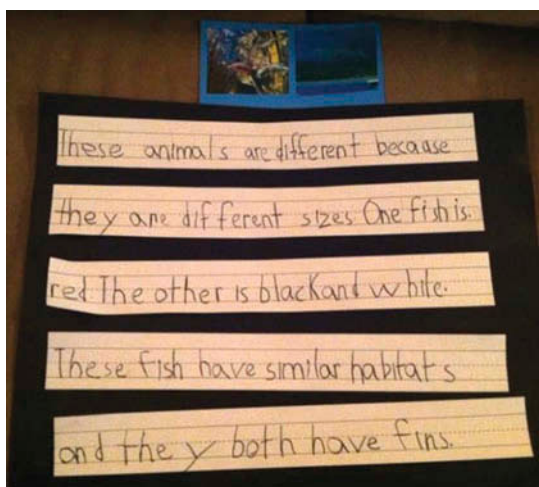 These animals are different because
they are different sizes. One fish is
red The other is black and white.
These fish have similar habitats
and they both have fins.